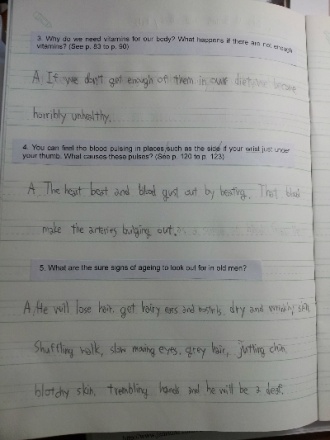 3. Why do we need vitamins for our body? What happens if there are not enough
vitamins? (See p. 83 to p. 90)
A. If we don't get enough of them in our diet, we become
horribly unhealthy.
4. You can feel the blood pulsing in places such as the side if your wrist just under
your thumb. What causes these pulses? (See p. 120 to p. 123)
A. The heart beat and blood gust out by beating. That blood
make the arteries bulging out.
5. What are the sure signs of ageing to look out for in old men?
A. He will lose hair, get hairy ears and nostrils, dry and wrinkly skin,
Shuffling walk, slow moving eyes, grey hair, jutting chin,
blotchy skin, trembling hands and he will be a deaf.